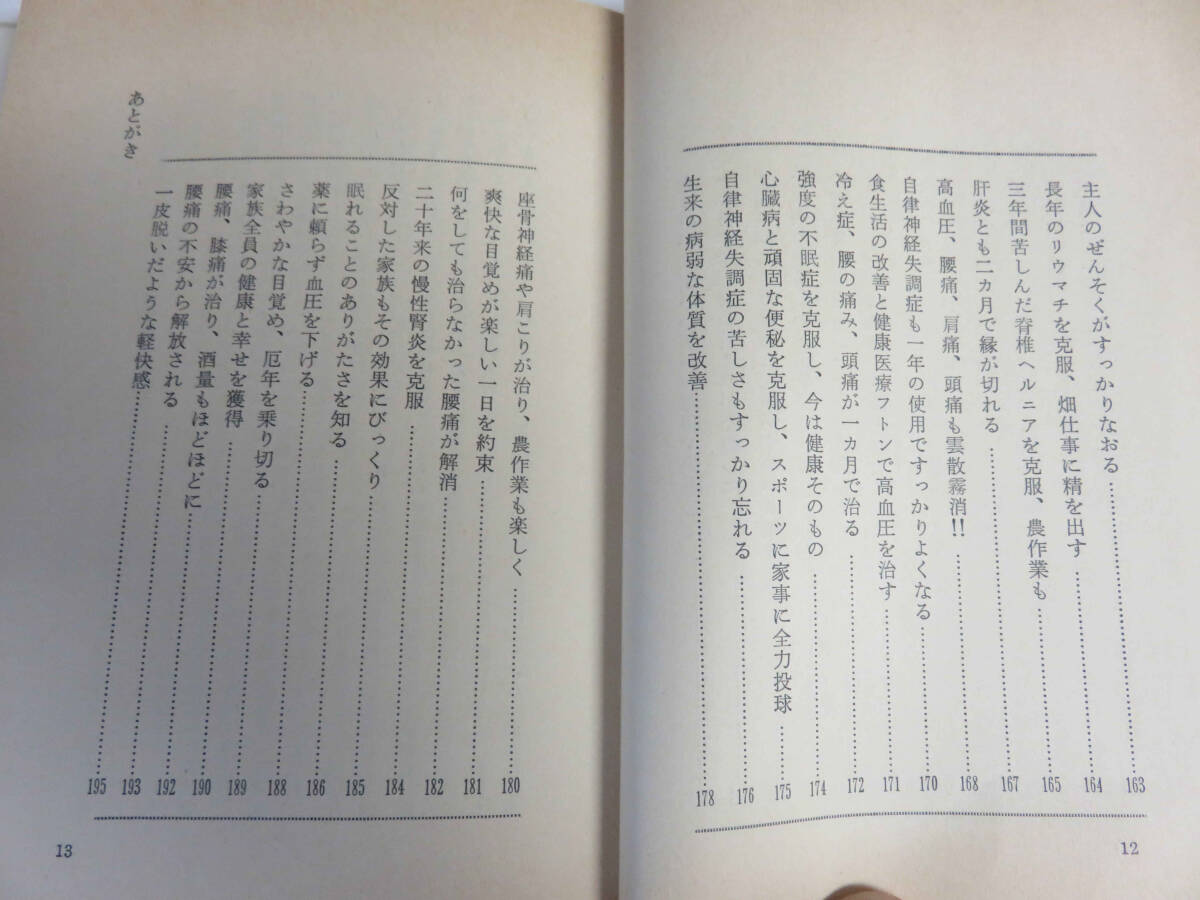 主人のぜんそくがすっかりなおる……163
長年のリウマチを克服、畑仕事に精を出す……164
三年間苦しんだ脊椎ヘルニアを克服、農作業も……165
肝炎とも二カ月で縁が切れる……167
高血圧、腰痛、肩痛、頭痛も雲散霧消!!……168
自律神経失調症も一年の使用ですっかりよくなる……170
食生活の改善と健康医療フトンで高血圧を治す……171
冷え症、腰の痛み、頭痛が一カ月で治る……172
強度の不眠症を克服し、今は健康そのもの……174
心臓病と頑固な便秘を克服し、スポーツに家事に全力投球……175
自律神経失調症の苦しさもすっかり忘れる……176
生来の病弱な体質を改善……178
12
座骨神経痛や肩こりが治り、農作業も楽しく……180
爽快な目覚めが楽しい一日を約束……181
何をしても治らなかった腰痛が解消……182
二十年来の慢性腎炎を克服……184
反対した家族もその効果にびっくり……185
眠れることのありがたさを知る……186
薬に頼らず血圧を下げる……188
さわやかな目覚め、厄年を乗り切る……189
家族全員の健康と幸せを獲得……190
腰痛、膝痛が治り、酒量もほどほどに……192
腰痛の不安から解放される……193
一皮脱いだような軽快感……195
あとがき
13